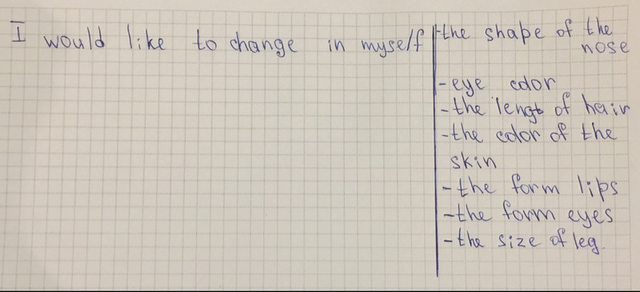 I would like to change in myself
-the shape of the
nose
-eye color
-the lengt of hair
-the color of the
skin
-the form lips
-the form eyes
-the size of leg